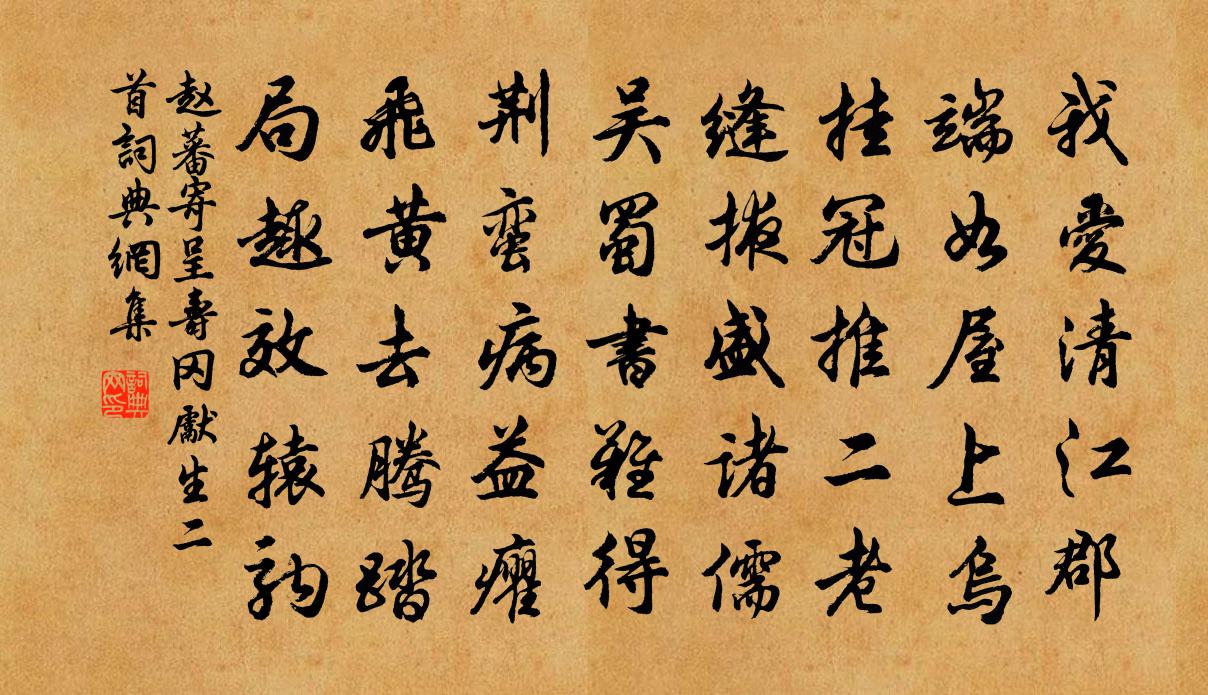 我愛清江郡
端如屋上烏
挂冠推二老
縫掖盛诸儒
吴蜀書難得
荆蛮病益癯
飛黄去腾踏
局趣效辕駒
赵蕃寄呈壽冈獻生二
首詞典網集
詞典網印